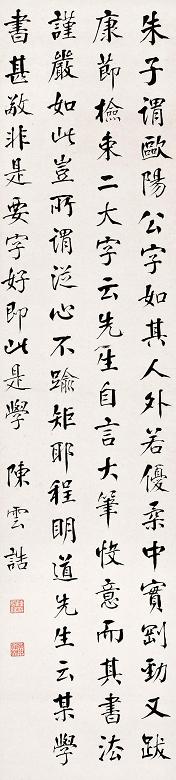 朱子謂歐陽公字如其人外若優柔中實剛勁又跋
康節檢束二大字云先生自言大筆快意而其書法
謹嚴如此豈所謂從心不踰矩耶程明道先生云某學
書甚敬非是要字好即此是學 陳雲誥